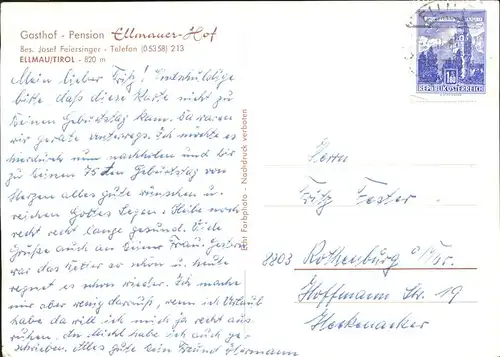 Gasthof - Pension Ellmauer-Hof
Bes. Josef Feiersinger - Telefon (05358) 213
ELLMAU/TIROL - 820 m
Mein lieber Fritz! Entschuldige
bitte daß diese Karte nicht zu
Deinem Geburtstag kam. Da waren
wir gerade unterwegs. Ich möchte es
hierdurch nun nachholen und Dir
zu Deinem 75ten Geburtstag von
Herzen alles gute wünschen u.
reichen Gottes Segen. Bleibe noch
recht recht lange gesund. Viele
Grüße auch an Deine Frau. Gestern
war das Wetter so schön u. heute
regnet es schon wieder. Ich mache
mir aber wenig daraus, wenn ich Urlaub
habe da will ich mich ja recht aus-
ruhen. Dir habe ich auch ge-
schrieben. Alles gute Dein Freund Hermann
Echt Farbphoto - Nachdruck verboten
REPUBLIK ÖSTERREICH
Herrn
Fritz Fester
8803 Rothenburg o/Tbr.
Hoffmann Str. 19
Heckenacker